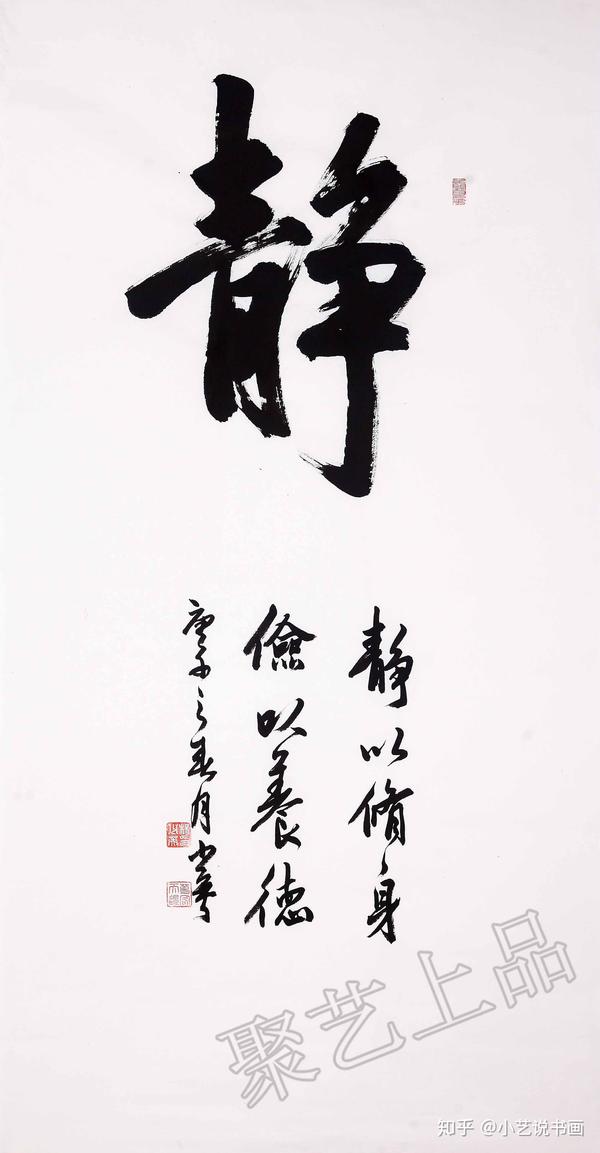 静
静以脩身
儉以養德
庚子之春月
聚艺上品
知乎 @小艺说书画